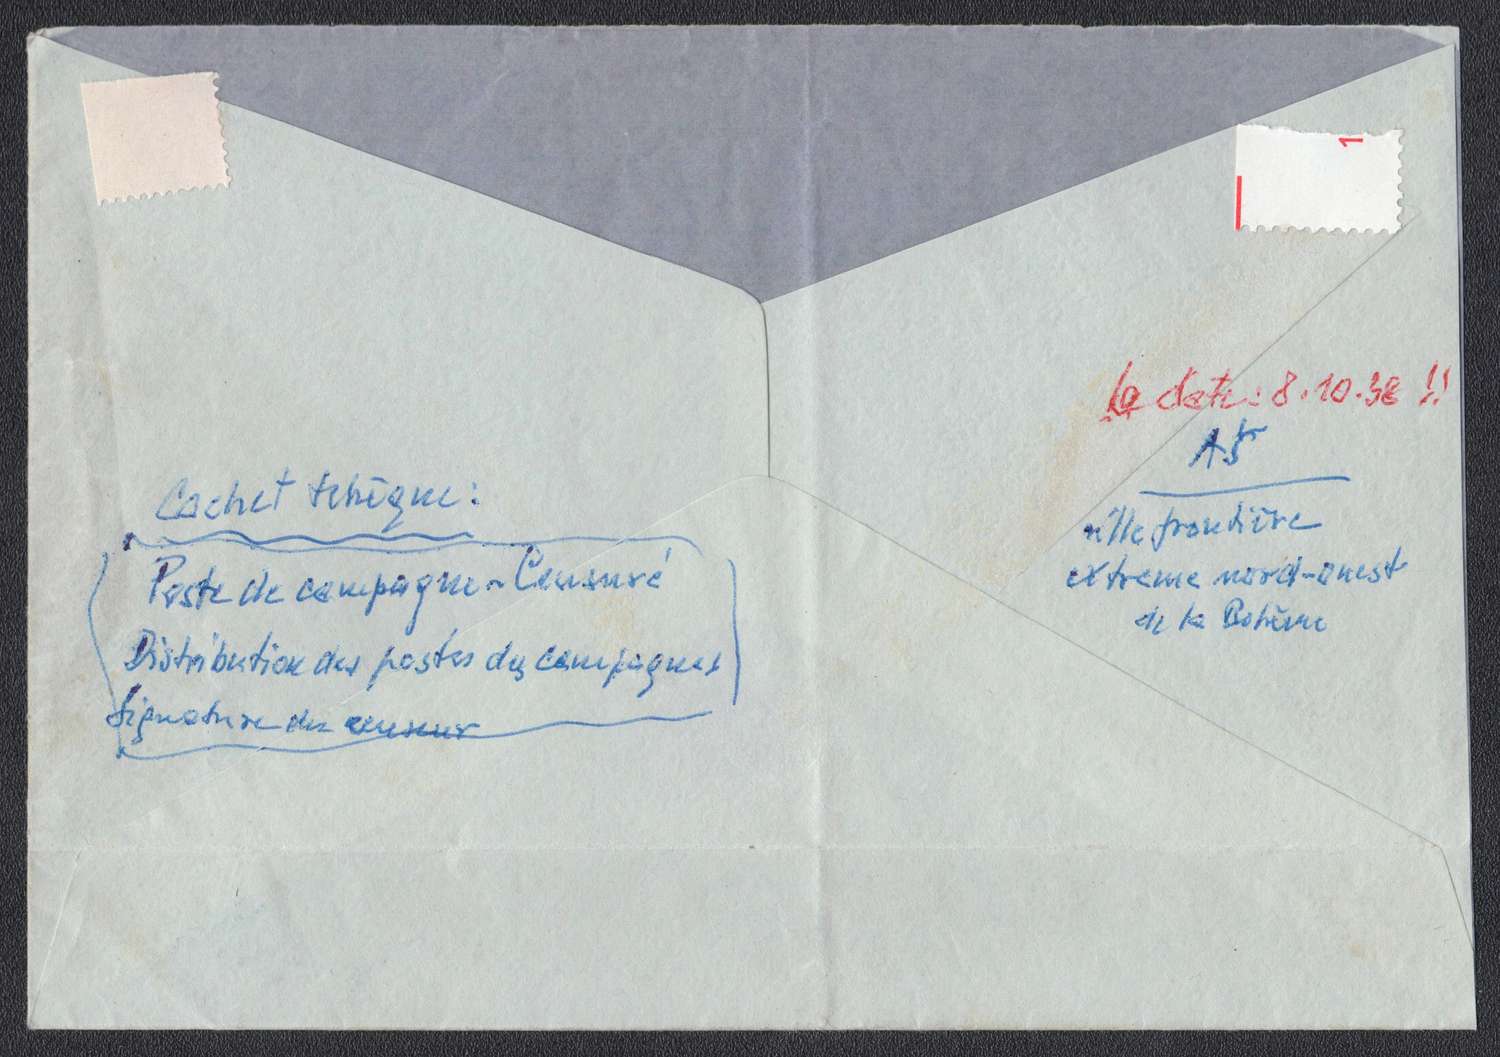 1
La date : 8.10.38 !!
Aš
ville frontière
extrême nord-ouest
de la Bohême
Cachet tchèque :
Poste de campagne - Censuré
Distribution des postes des campagnes
Signature du censeur